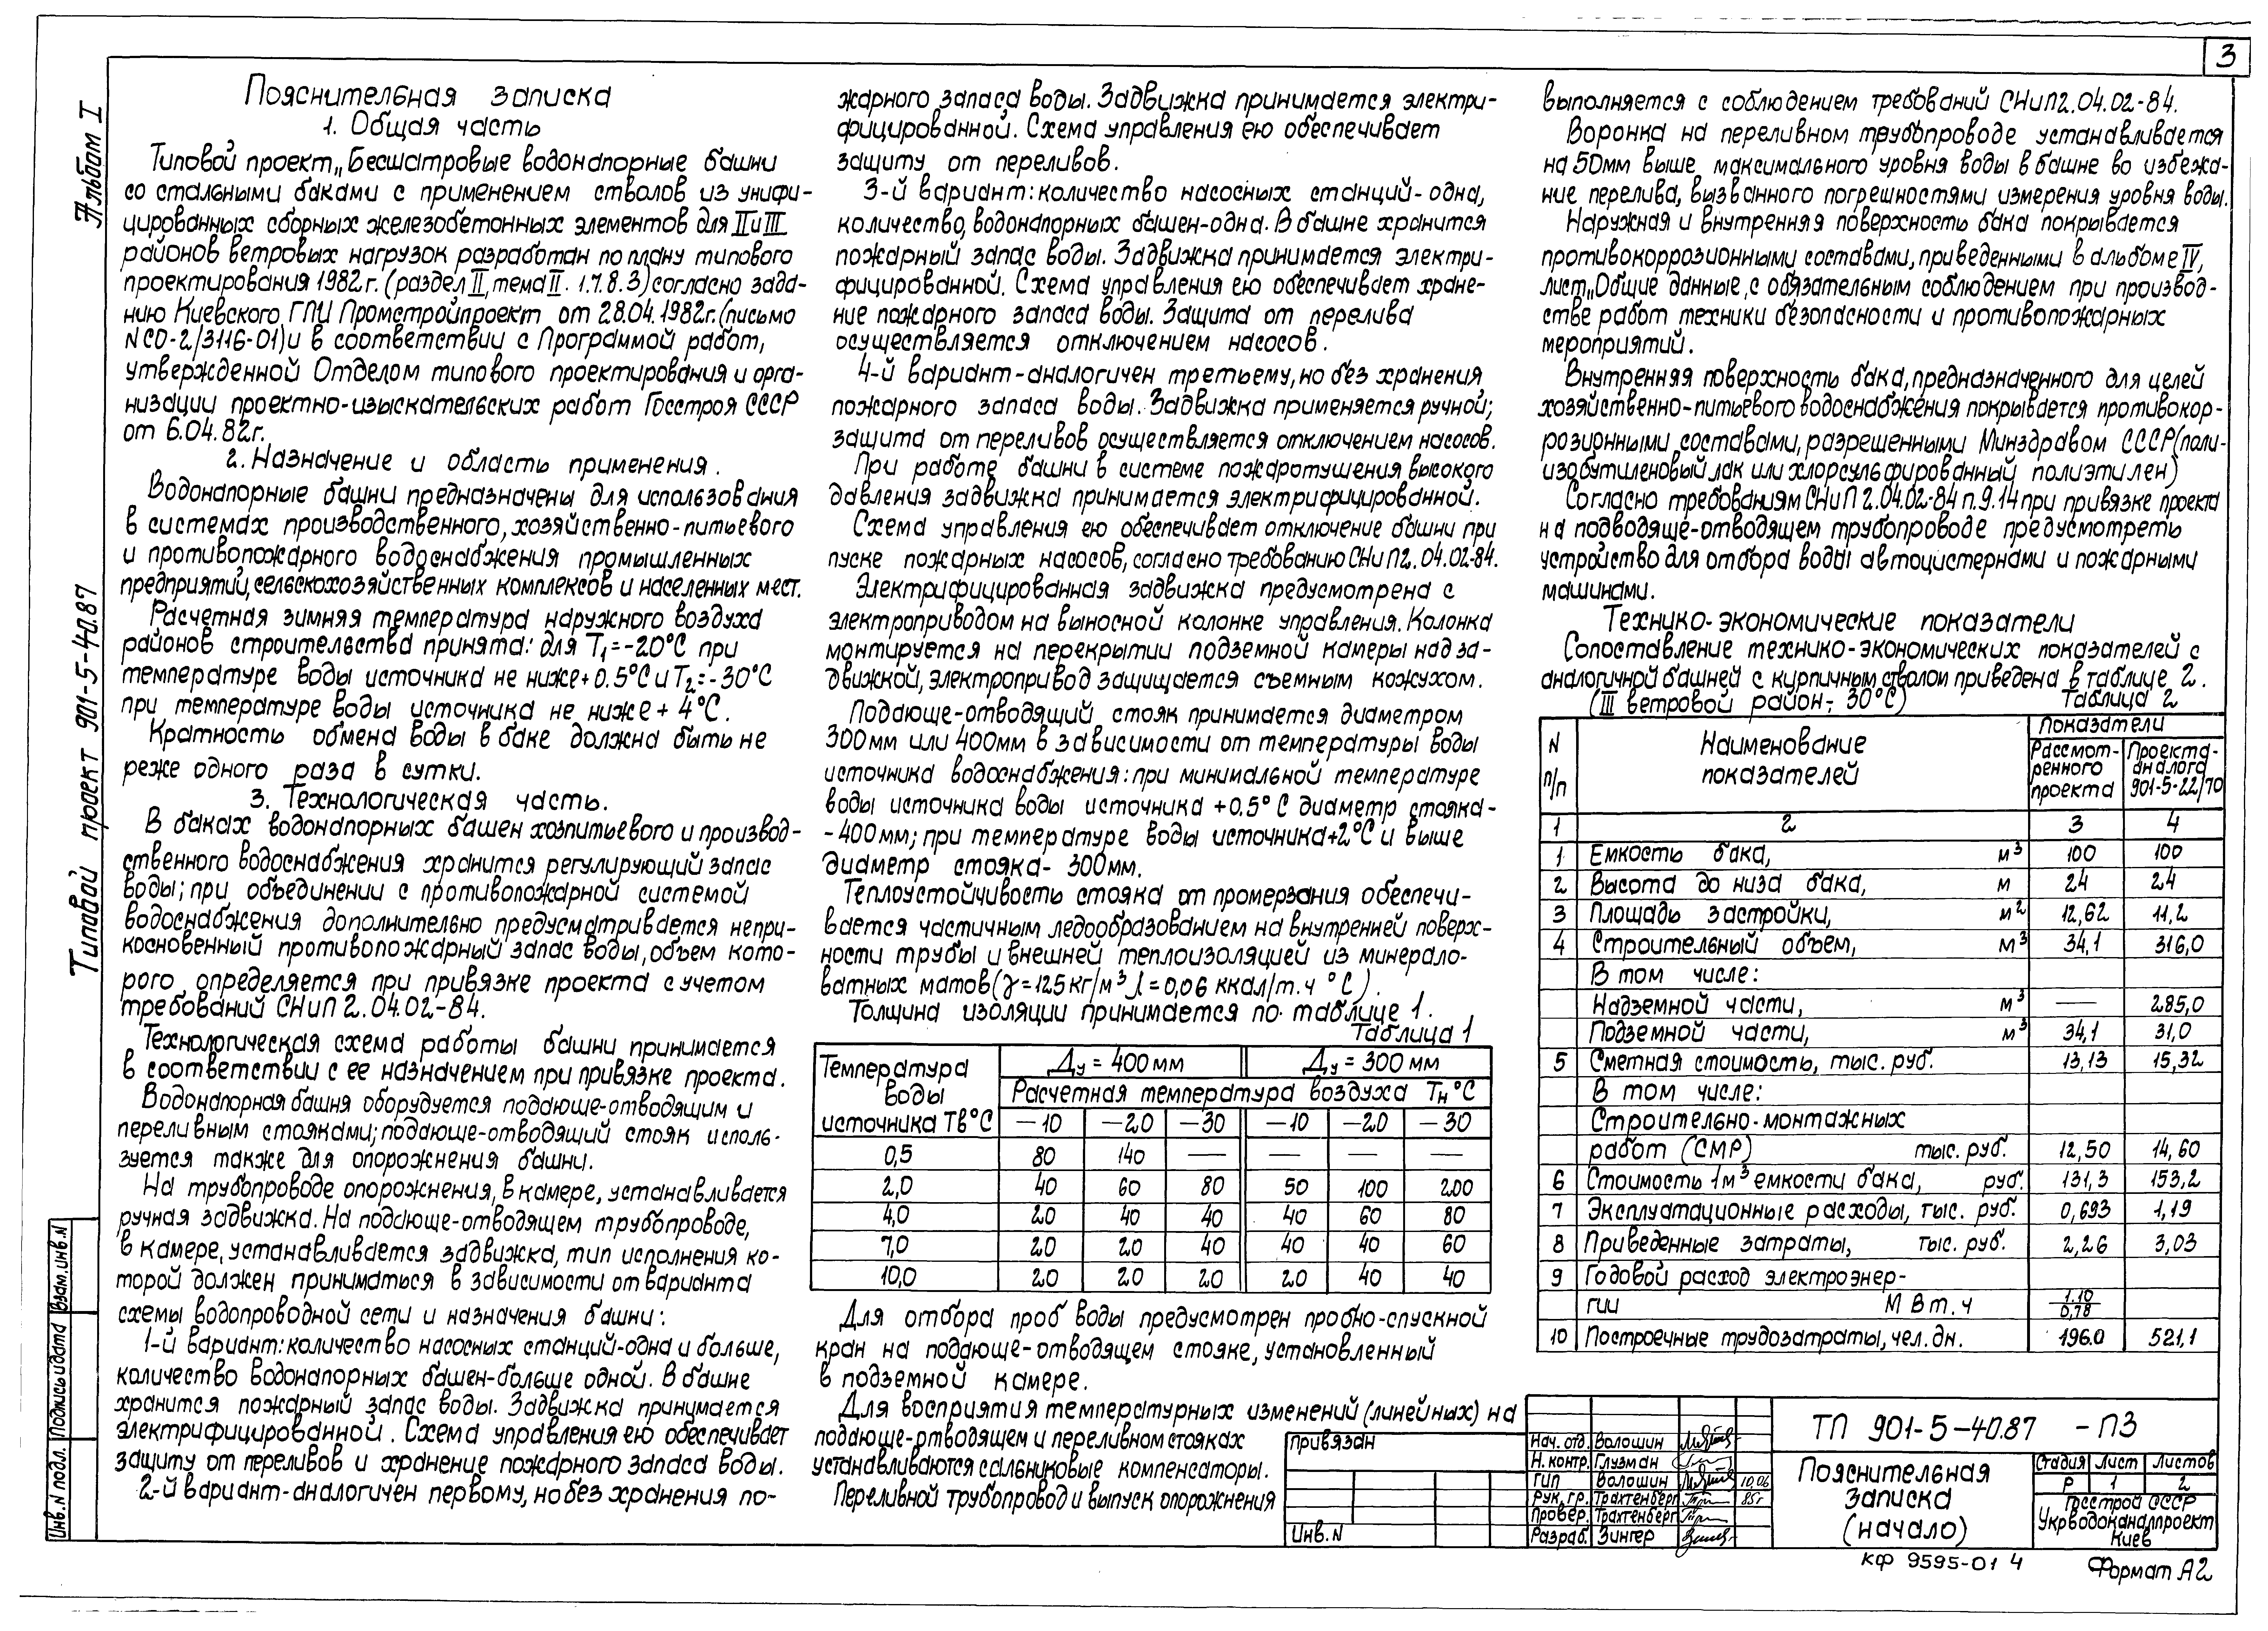 3
Альбом I
Типовой проект 901-5-40.87
Пояснительная записка
1. Общая часть
Типовой проект „Бесшатровые водонапорные башни
со стальными баками с применением стволов из унифи-
цированных сборных железобетонных элементов для II и III
районов ветровых нагрузок разработан по плану типового
проектирования 1982г. (раздел II, тема II. 1.7.8.3) согласно зада-
нию Киевского ГПИ Промстройпроект от 28.04.1982г. (письмо
NСО-2/3116-01) и в соответствии с Программой работ,
утвержденной Отделом типового проектирования и орга-
низации проектно-изыскательских работ Госстроя СССР
от 6.04.82г.
2. Назначение и область применения.
Водонапорные башни предназначены для использования
в системах производственного, хозяйственно-питьевого
и противопожарного водоснабжения промышленных
предприятий, сельскохозяйственных комплексов и населенных мест.
Расчетная зимняя температура наружного воздуха
районов строительства принята: для Т1=-20°С при
температуре воды источника не ниже+0.5°С и Т2=-30°С
при температуре воды источника не ниже + 4°С.
Кратность обмена воды в баке должна быть не
реже одного раза в сутки.
3. Технологическая часть.
В баках водонапорных башен хозпитьевого и производ-
ственного водоснабжения хранится регулирующий запас
воды; при объединении с противопожарной системой
водоснабжения дополнительно предусматривается непри-
косновенный противопожарный запас воды, объем кото-
рого определяется при привязке проекта с учетом
требований СНиП 2.04.02-84.
Технологическая схема работы башни принимается
в соответствии с ее назначением при привязке проекта.
Водонапорная башня оборудуется подающе-отводящим и
переливным стояками; подающе-отводящий стояк исполь-
зуется также для опорожнения башни.
На трубопроводе опорожнения, в камере, устанавливается
ручная задвижка. На подающе-отводящем трубопроводе,
в камере, устанавливается задвижка, тип исполнения ко-
торой должен приниматься в зависимости от варианта
схемы водопроводной сети и назначения башни:
1-й вариант: количество насосных станций-одна и больше,
количество водонапорных башен-больше одной. В башне
хранится пожарный запас воды. Задвижка принимается
электрифицированной. Схема управления ею обеспечивает
защиту от переливов и хранение пожарного запаса воды.
2-й вариант-аналогичен первому, но без хранения по-
жарного запаса воды. Задвижка принимается электри-
фицированной. Схема управления ею обеспечивает
защиту от переливов.
3-й вариант: количество насосных станций-одна,
количество, водонапорных башен-одна. В башне хранится
пожарный запас воды. Задвижка принимается электри-
фицированной. Схема управления ею обеспечивает хране-
ние пожарного запаса воды. Защита от перелива
осуществляется отключением насосов.
4-й вариант-аналогичен третьему, но без хранения
пожарного запаса воды. Задвижка применяется ручной;
защита от переливов осуществляется отключением насосов.
При работе башни в системе пожаротушения высокого
давления задвижка принимается электрифицированной.
Схема управления ею обеспечивает отключение башни при
пуске пожарных насосов, согласно требованию СНиП2.04.02-84.
Электрифицированная задвижка предусмотрена с
электроприводом на выносной колонке управления. Колонка
монтируется на перекрытии подземной камеры над за-
движкой, электропривод защищается съемным кожухом.
Подающе-отводящий стояк принимается диаметром
300мм или 400мм в зависимости от температуры воды
источника водоснабжения: при минимальной температуре
воды источника воды источника +0.5°С диаметр стояка-
-400мм; при температуре воды источника+2°С и выше
диаметр стояка- 300мм.
Теплоустойчивость стояка от промерзания обеспечи-
вается частичным ледообразованием на внутренней поверх-
ности трубы и внешней теплоизоляцией из минерало-
ватных матов (γ=125кг/м³ λ=0,06 ккал/т.ч °С).
Толщина изоляции принимается по таблице 1.
Таблица 1
Температура воды источника Тв°С | Ду = 400мм | Ду = 300мм
Расчетная температура воздуха Тн°С
-10 | -20 | -30 | -10 | -20 | -30
0,5 | 80 | 140 | — | — | — | —
2,0 | 40 | 60 | 80 | 50 | 100 | 200
4,0 | 20 | 40 | 40 | 40 | 60 | 80
7,0 | 20 | 20 | 40 | 40 | 40 | 60
10,0 | 20 | 20 | 20 | 20 | 40 | 40
Для отбора проб воды предусмотрен пробно-спускной
кран на подающе-отводящем стояке, установленный
в подземной камере.
Для восприятия температурных изменений (линейных) на
подающе-отводящем и переливном стояках
устанавливаются сальниковые компенсаторы.
Переливной трубопровод и выпуск опорожнения
выполняется с соблюдением требований СНиП2.04.02-84.
Воронка на переливном трубопроводе устанавливается
на 50мм выше максимального уровня воды в башне во избежа-
ние перелива, вызванного погрешностями измерения уровня воды.
Наружная и внутренняя поверхность бака покрывается
противокоррозионными составами, приведенными в альбоме IV,
лист „Общие данные, с обязательным соблюдением при производ-
стве работ техники безопасности и противопожарных
мероприятий.
Внутренняя поверхность бака, предназначенного для целей
хозяйственно-питьевого водоснабжения покрывается противокор-
розионными составами, разрешенными Минздравом СССР (поли-
изобутиленовый лак или хлорсульфированный полиэтилен)
Согласно требованиям СНиП 2.04.02-84 п.9.14 при привязке проекта
на подводяще-отводящем трубопроводе предусмотреть
устройство для отбора воды автоцистернами и пожарными
машинами.
Технико-экономические показатели
Сопоставление технико-экономических показателей с
аналогичной башней с кирпичным стволом приведена в таблице 2.
(III ветровой район-; 30°С) Таблица 2
N п/п | Наименование показателей | Показатели
Рассмот-ренного проекта | Проекта-аналога 901-5-22/70
1 | 2 | 3 | 4
1 | Емкость бака, м³ | 100 | 100
2 | Высота до низа бака, м | 24 | 24
3 | Площадь застройки, м² | 12,62 | 11,2
4 | Строительный объем, м³ | 34,1 | 316,0
В том числе:
Надземной части, м³ | — | 285,0
Подземной части, м³ | 34,1 | 31,0
5 | Сметная стоимость, тыс. руб. | 13,13 | 15,32
В том числе:
Строительно-монтажных
работ (СМР) тыс. руб. | 12,50 | 14,60
6 | Стоимость 1м³ емкости бака, руб. | 131,3 | 153,2
7 | Эксплуатационные расходы, тыс. руб. | 0,693 | 1,19
8 | Приведенные затраты, тыс. руб. | 2,26 | 3,03
9 | Годовой расход электроэнер-
гии МВт.ч | 1.10/0,78
10 | Построечные трудозатраты, чел. дн. | 196.0 | 521,1
Привязан
Инв.N
Нач. отд. Волошин
Н. контр. Глузман
ГИП Волошин 10.06
Рук. гр. Трахтенберг 85г
Провер. Трахтенберг
Разраб. Зингер
ТП 901-5-40.87 -ПЗ
Пояснительная
записка
(начало)
Стадия Лист Листов
Р 1 2
Госстрой СССР
Укрводоканалпроект
Киев
КФ 9595-01 4
Формат А2
Инв. N подл. Подпись и дата Взам. инв. N